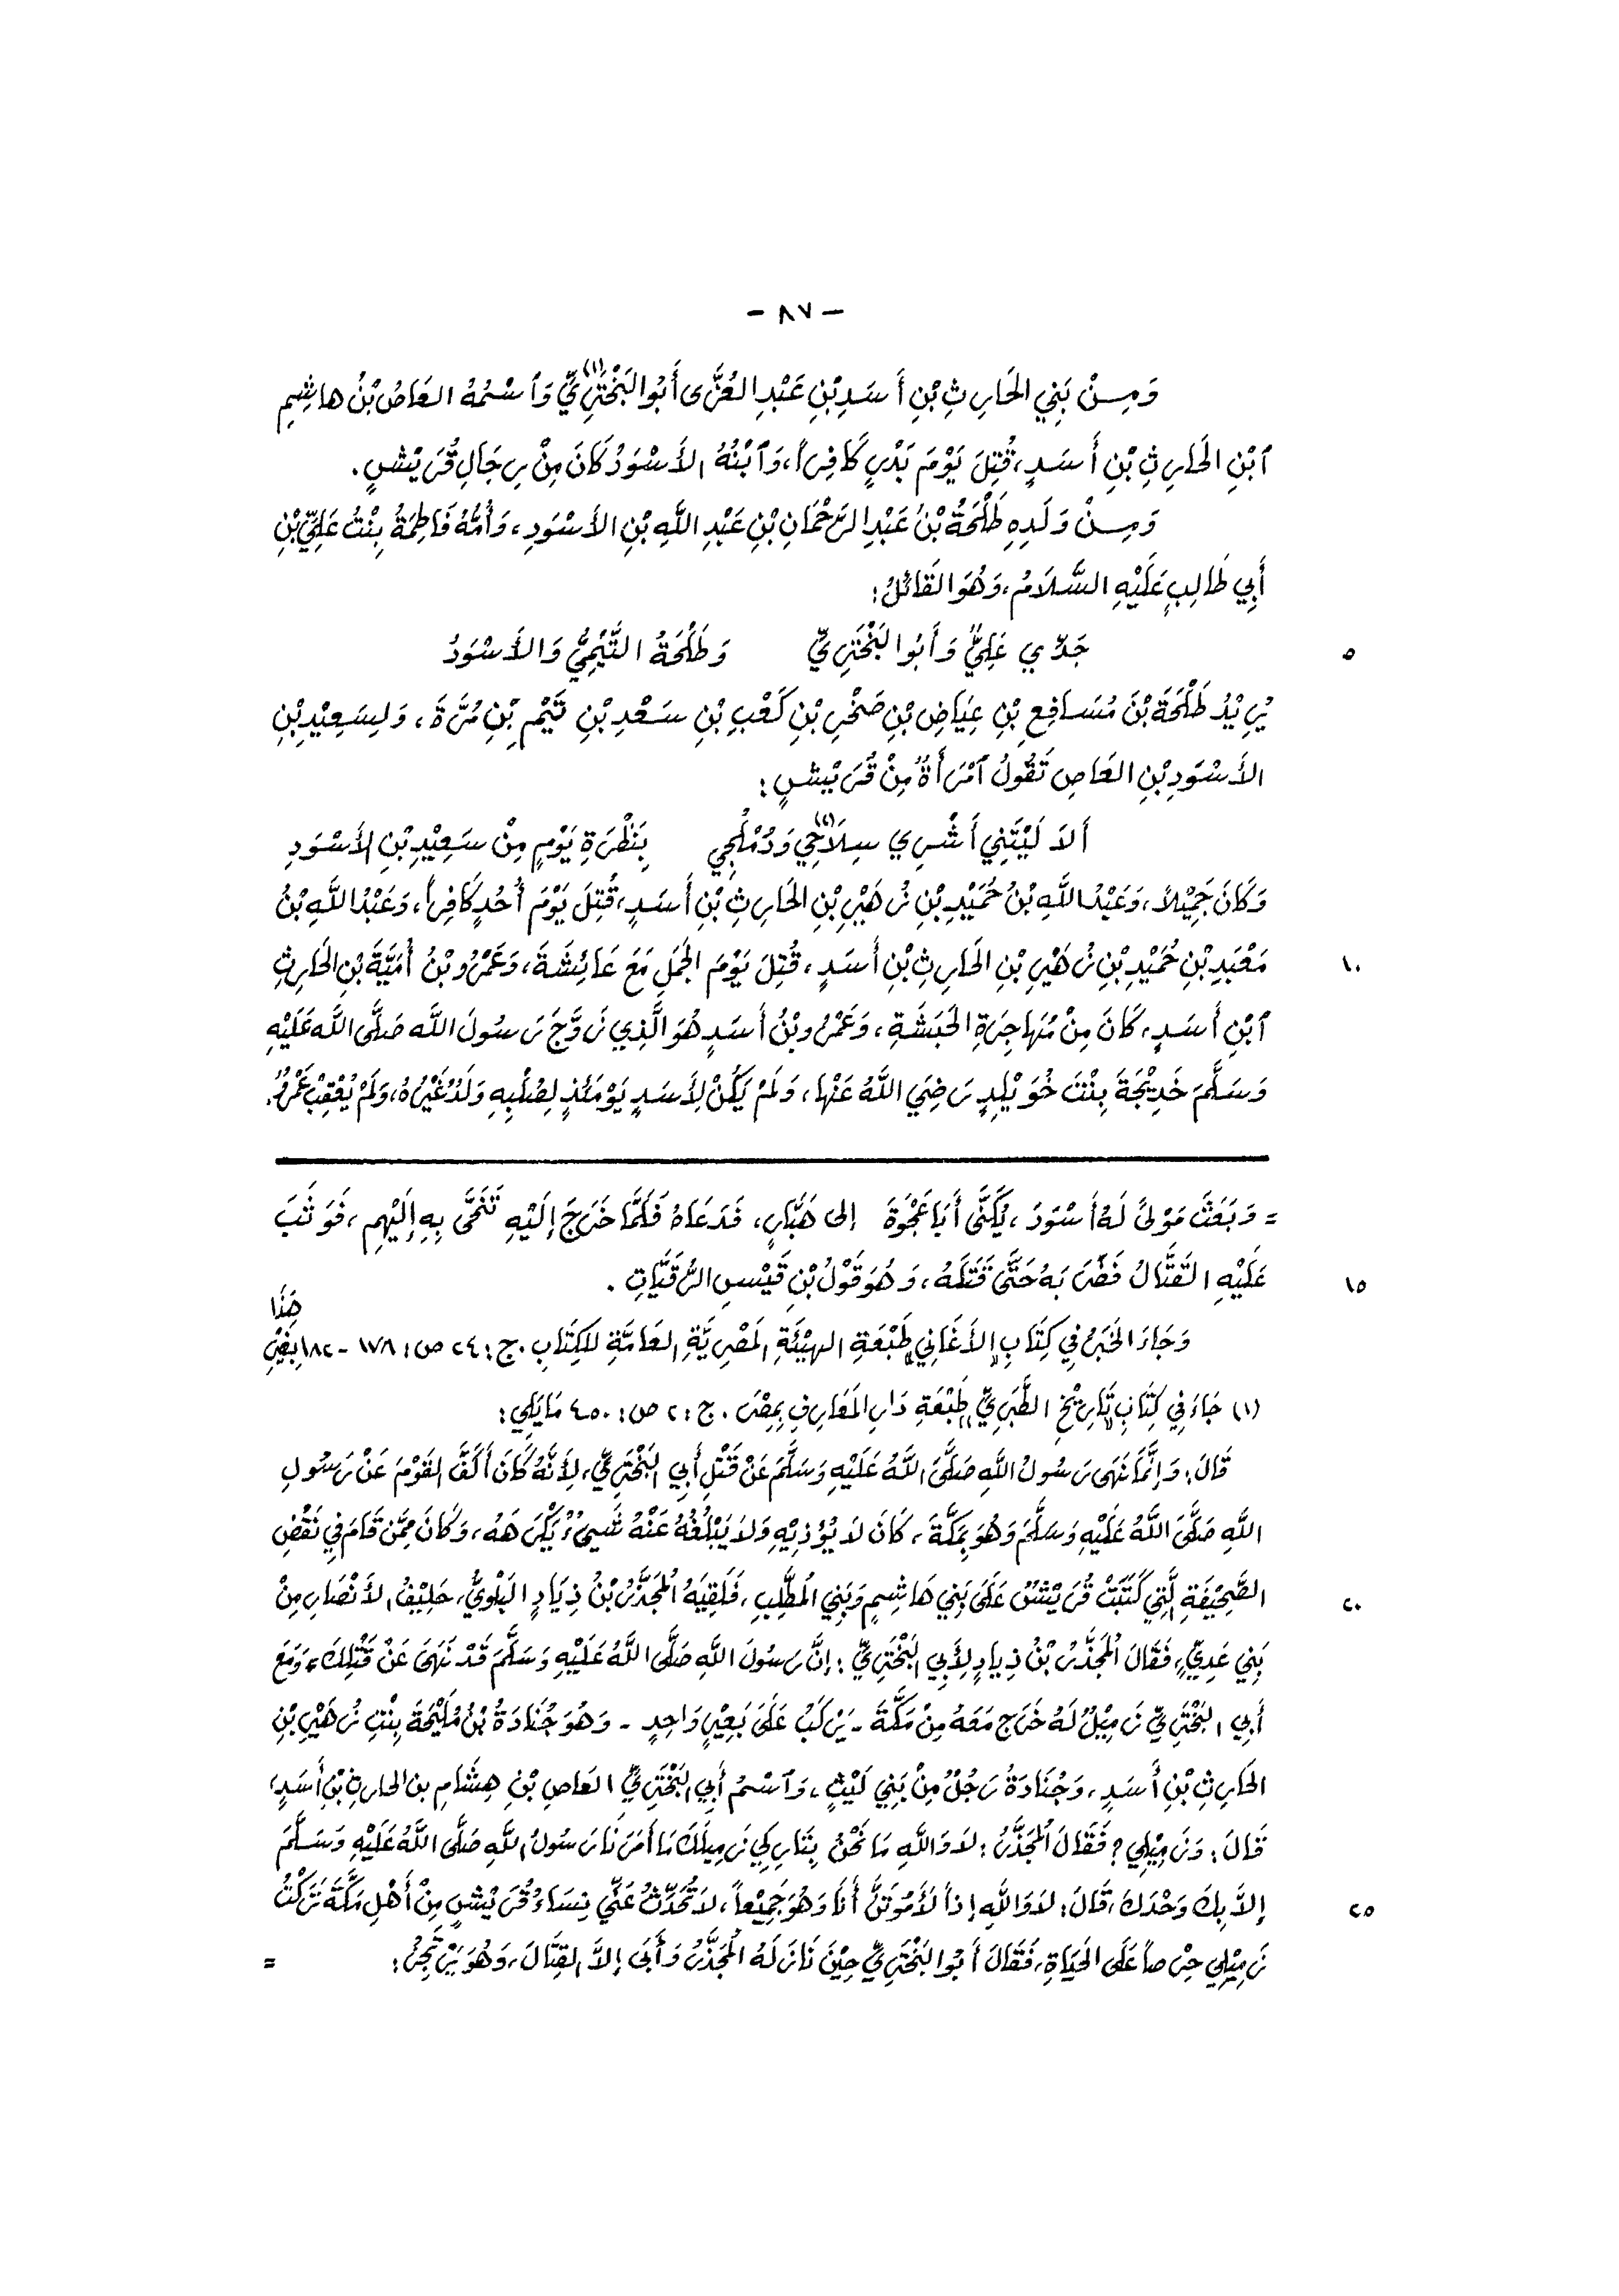 - ٨٧ -
وَمِنْ بَنِي الحَارِثِ بْنِ أَسَدِ بْنِ عَبْدِ العُزَّى أَبُو البَخْتَرِيِّ(١) وَٱسْمُهُ العَاصُ بْنُ هاشِمِ
ٱبْنِ الحَارِثِ بْنِ أَسَدٍ، قُتِلَ يَوْمَ بَدْرٍ كَافِراً، وَٱبْنُهُ الأَسْوَدُ كَانَ مِنْ رِجَالِ قُرَيْشٍ.
وَمِنْ وَلَدِهِ طَلْحَةُ بْنُ عَبْدِ الرَّحْمَانِ بْنِ عَبْدِ اللَّهِ بْنِ الأَسْوَدِ، وَأُمُّهُ فَاطِمَةُ بِنْتُ عَلِيِّ بْنِ
أَبِي طَالِبٍ عَلَيْهِ السَّلَامُ، وَهُوَ القَائلُ:
٥ جَدِّي عَلِيٌّ وَأَبُو البَخْتَرِيِّ وَطَلْحَةُ التَّيْمِيُّ وَالأَسْوَدُ
يُرِيْدُ طَلْحَةَ بْنَ مُسَافِعِ بْنِ عِيَاضِ بْنِ صَخْرِ بْنِ كَعْبِ بْنِ سَعْدِ بْنِ تَيْمِ بْنِ مُرَّةَ، وَلِسَعِيْدِ بْنِ
الأَسْوَدِ بْنِ العَاصِ تَقُولُ ٱمْرَأَةٌ مِنْ قُرَيْشٍ:
أَلاَ لَيْتَنِي أَشْرِي سِلَاحِي(٢) وَدُمْلُجِي بَنَظْرَةِ يَوْمٍ مِنْ سَعِيْدِ بْنِ الأَسْوَدِ
وَكَانَ جَمِيْلاً، وَعَبْدُ اللَّهِ بْنُ حُمَيْدِ بْنِ زُهَيْرِ بْنِ الحَارِثِ بْنِ أَسَدٍ، قُتِلَ يَوْمَ أُحُدٍ كَافِراً، وَعَبْدُ اللَّهِ بْنُ
١٠ مَعْبَدِ بْنِ حُمَيْدِ بْنِ زُهَيْرِ بْنِ الحَارِثِ بْنِ أَسَدٍ، قُتِلَ يَوْمَ الجَمَلِ مَعَ عَائِشَةَ، وَعَمْرُو بْنُ أُمَيَّةَ بْنِ الحَارِثِ
ٱبْنِ أَسَدٍ، كَانَ مِنْ مُهَاجِرَةِ الحَبَشَةِ، وَعَمْرُو بْنُ أَسَدٍ هُوَ الَّذِي زَوَّجَ رَسُولَ اللَّه صَلَّى اللَّه عَلَيْهِ
وَسَلَّمَ خَدِيْجَةَ بِنْتَ خُوَيْلِدٍ رَضِيَ اللَّهُ عَنْهَا، وَلَمْ يَكُنْ لِأَسَدٍ يَوْمَئذٍ لِصُلْبِهِ وَلَدٌ غَيْرُهُ، وَلَمْ يُعْقِبْ عَمْرٌو.
= وَبَعَثَ مَوْلىً لَهُ أَسْوَدَ، يُكَنَّى أَبَا عَجْوَةَ إلى هَبَّارٍ، فَدَعَاهُ فَلَمَّا خَرَجَ إِلَيْهِ تَنَحَّى بِهِ إِلَيْهِم، فَوَثَبَ
١٥ عَلَيْهِ القَتَّالُ فَضَرَبَهُ حَتَّى قَتَلَهُ، وَهُوَ قَوْلُ بْنِ قَيْسِ الرُّقَيَّاتِ.
وَجَاءَ الخَبَرُ فِي كِتَابِ «الأَغَانِي» طَبْعَةِ الهَيْئَةِ المَصْرِيَّةِ العَامَّةِ لِلكِتَابِ. ج: ٢٤ ص: ١٧٨ - ١٨٢ بِغَيْرِ هَذَا
(١) جَاءَ فِي كِتَابِ «تَارِيْخِ الطَّبَرِيِّ» طَبْعَةِ دَارِ المَعَارِفِ بِمِصْرَ. ج: ٢ ص: ٤٥٠ مَا يَلِي:
قَالَ: وَإِنَّمَا نَهَى رَسُولُ اللَّهِ صَلَّى اللَّهُ عَلَيْهِ وَسَلَّمَ عَنْ قَتْلِ أَبِي البَخْتَرِيِّ، لِأَنَّهُ كَانَ أَكَفَّ القَوْمَ عَنْ رَسُولِ
اللَّهِ صَلَّى اللَّهُ عَلَيْهِ وَسَلَّمَ وَهُوَ بِمَكَّةَ، كَانَ لاَ يُؤذِيْهِ وَلاَ يَبْلُغُهُ عَنْهُ شَيْءٌ يَكْرَهُهُ، وَكَانَ مِمَّن قَامَ فِي نَقْضِ
٢٠ الصَّحِيْفَةِ الَّتِي كَتَبَتْ قُرَيْشٌ عَلَى بَنِي هَاشِمٍ وَبَنِي المُطَّلِبِ، فَلَقِيَهُ المُجَذَّرُ بْنُ ذِيَادٍ البَلْوِيُّ، حَلِيْفُ الأَنْصَارِ مِنْ
بَنِي عَدِيٍّ، فَقَالَ المُجَذَّرُ بْنُ ذِيَادٍ لِأَبِي البَخْتَرِيِّ: إِنَّ رَسُولَ اللَّهِ صَلَّى اللَّهُ عَلَيْهِ وَسَلَّمَ قَدْ نَهَى عَنْ قَتْلِكَ، وَمَعَ
أَبِي البَخْتَرِيِّ زَمِيْلٌ لَهُ خَرَجَ مَعَهُ مِنْ مَكَّةَ - يَرْكَبُ عَلَى بَعِيْرٍ وَاحِدٍ - وَهُوَ جُنَادَةُ بْنُ مُلَيْحَةَ بِنْتِ زُهَيْرِ بْنِ
الحَارِثِ بْنِ أَسَدٍ، وَجُنَادَةُ رَجُلٌ مِنْ بَنِي لَيْثٍ، وَٱسْمُ أَبِي البَخْتَرِيِّ العَاصِ بْنِ هِشَامِ بن الحارثِ بْنِ أَسَدٍ،
قَالَ: وَزَمِيْلِي؟ فَقَالَ المُجَذَّرُ: لاَ وَاللَّهِ مَا نَحْنُ بِتَارِكِي زَمِيلَكَ مَا أَمَرَنَا رَسُولُ اللَّهِ صَلَّى اللَّهُ عَلَيْهِ وَسَلَّمَ
٢٥ إِلاَّ بِكَ وَحْدَكَ، قَالَ: لاَ وَاللَّهِ إِذاً لَأَمُوتَنَّ أَنَا وَهُوَ جَمِيْعاً، لاَ تُحَدِّثُ عَنِّي نِسَاءُ قُرَيْشٍ مِنْ أَهْلِ مَكَّةَ تَرَكْتُ
زَمِيْلِي حِرْصاً عَلَى الحَيَاةِ، فَقَالَ أَبُو البَخْتَرِيِّ حِيْنَ نَازَلَهُ المُجَذَّرُ وَأَبَى إِلاَّ القِتَالَ، وَهُوَ يَرْتَجِزُ: =